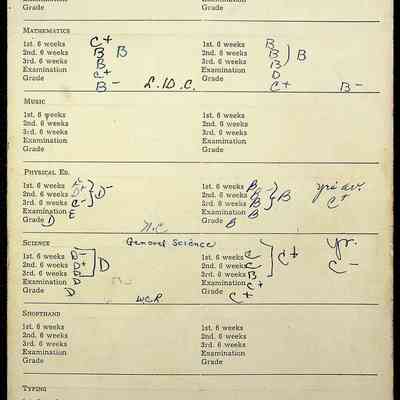 Examination Examination
Grade Grade
MATHEMATICS
1st. 6 weeks C+ 1st. 6 weeks B
2nd. 6 weeks B B 2nd. 6 weeks B B
3rd. 6 weeks B 3rd. 6 weeks B
Examination C+ Examination D
Grade B- L.D.C. Grade C+ B-
MUSIC
1st. 6 weeks 1st. 6 weeks
2nd. 6 weeks 2nd. 6 weeks
3rd. 6 weeks 3rd. 6 weeks
Examination Examination
Grade Grade
PHYSICAL ED.
1st. 6 weeks 1st. 6 weeks B yrs av.
2nd. 6 weeks D+ D- 2nd. 6 weeks B- B C+
3rd. 6 weeks C- 3rd. 6 weeks B
Examination E Examination B
Grade D Grade B
N.C.
SCIENCE General Science yr.
1st. 6 weeks D- 1st. 6 weeks C
2nd. 6 weeks D+ D 2nd. 6 weeks C C+ C-
3rd. 6 weeks 3rd. 6 weeks B
Examination D Examination C+
Grade D W.C.R. Grade C+
SHORTHAND
1st. 6 weeks 1st. 6 weeks
2nd. 6 weeks 2nd. 6 weeks
3rd. 6 weeks 3rd. 6 weeks
Examination Examination
Grade Grade
TYPING